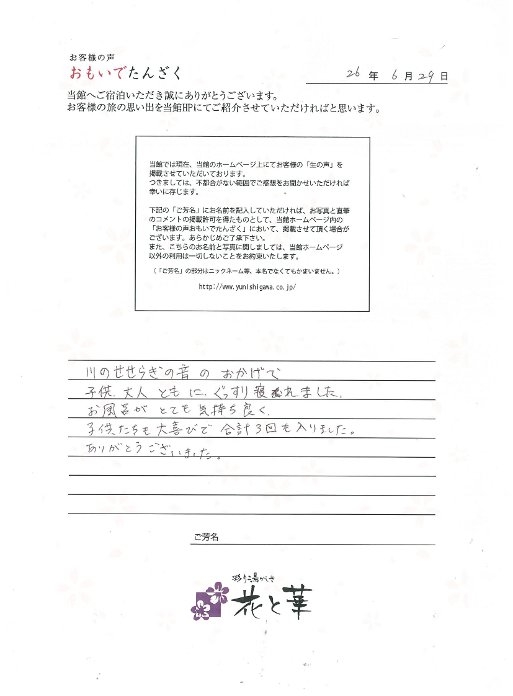 お客様の声
おもいでたんざく
26 年 6 月 29 日
当館へご宿泊いただき誠にありがとうございます。
お客様の旅の思い出を当館HPにてご紹介させていただければと思います。
当館では現在、当館のホームページ上にてお客様の「生の声」を
掲載させていただいております。
つきましては、不都合がない範囲でご感想をお聞かせいただければ
幸いに存じます。
下記の「ご芳名」にお名前を記入していただければ、お写真と直筆
のコメントの掲載許可を得たものとして、当館ホームページ内の
「お客様の声おもいでたんざく」において、掲載させて頂く場合が
ございます。あらかじめご了承下さい。
また、こちらのお名前と写真に関しましては、当館ホームページ
以外の利用は一切しないことをお約束いたします。
(「ご芳名」の部分はニックネーム等、本名でなくてもかまいません。)
http://www.yunishigawa.co.jp/
川のせせらぎの音の おかげで
子供、大人 ともに、ぐっすり寝れました。
お風呂が とても 気持ち良く、
子供たちも大喜びで 合計3回も入りました。
ありがとうございました。
ご芳名
花と華